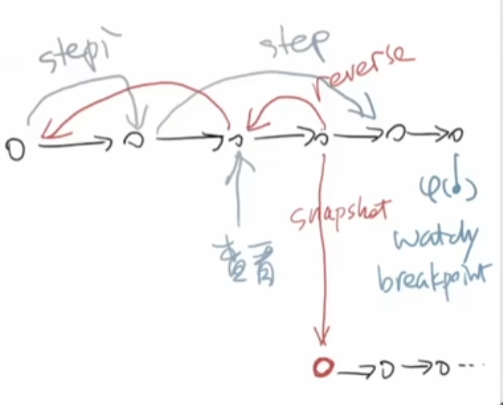 stepi
step
reverse
snapshot
查看
φ(s)
breakpoint